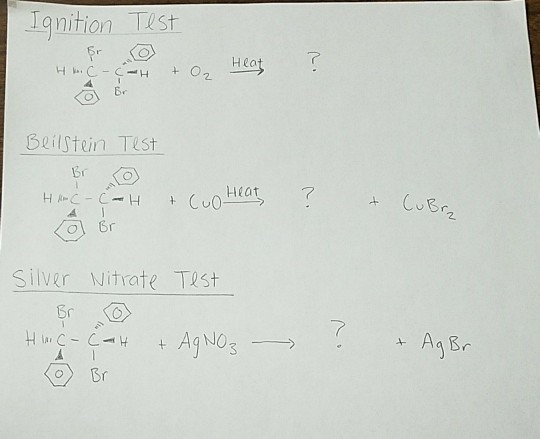 Ignition Test
Br
H C - C H + O2 Heat ?
Br
Beilstein Test
Br
H C - C H + CuO Heat ? + CuBr2
Br
Silver Nitrate Test
Br
H C - C H + AgNO3 ? + AgBr
Br